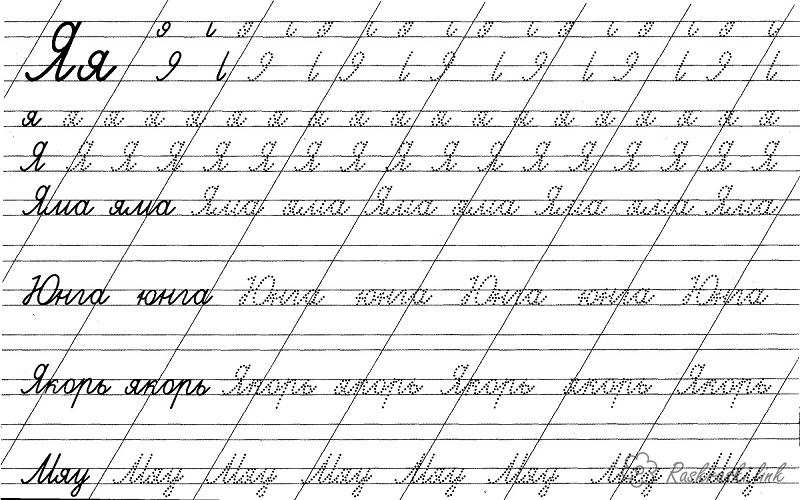 Яя
я я я я я я я я я я я я я я я я я я я
Я Я Я Я Я Я Я Я Я Я Я Я Я Я Я Я Я
Яма яма Яма яма Яма яма Яма яма Яма
Юнга юнга Юнга юнга Юнга юнга Юнга
Якорь якорь Якорь якорь Якорь якорь Якорь
Мяу Мяу Мяу Мяу Мяу Мяу Мяу Мяу
Raskraski.link